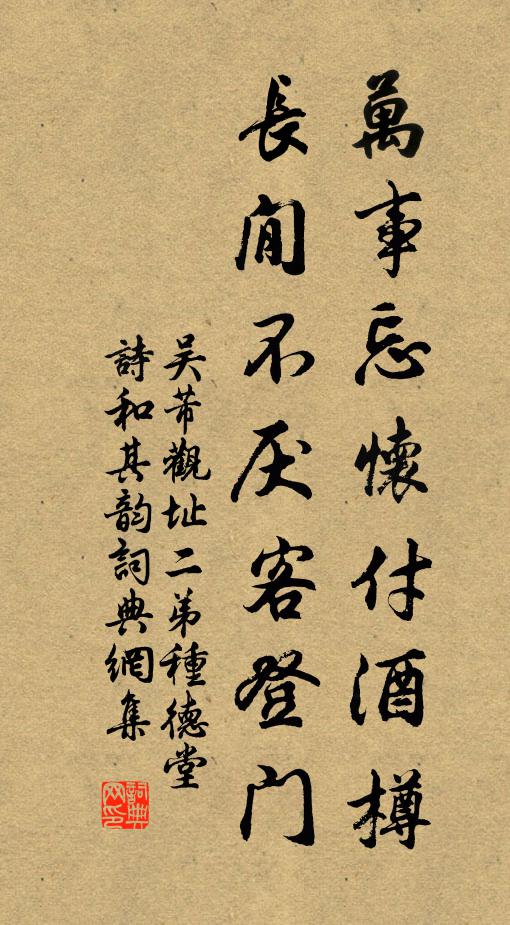 萬事忘懷付酒樽
長閒不厌客登門
吴芾觀址二弟種德堂
詩和其韵詞典網集
詞典網印